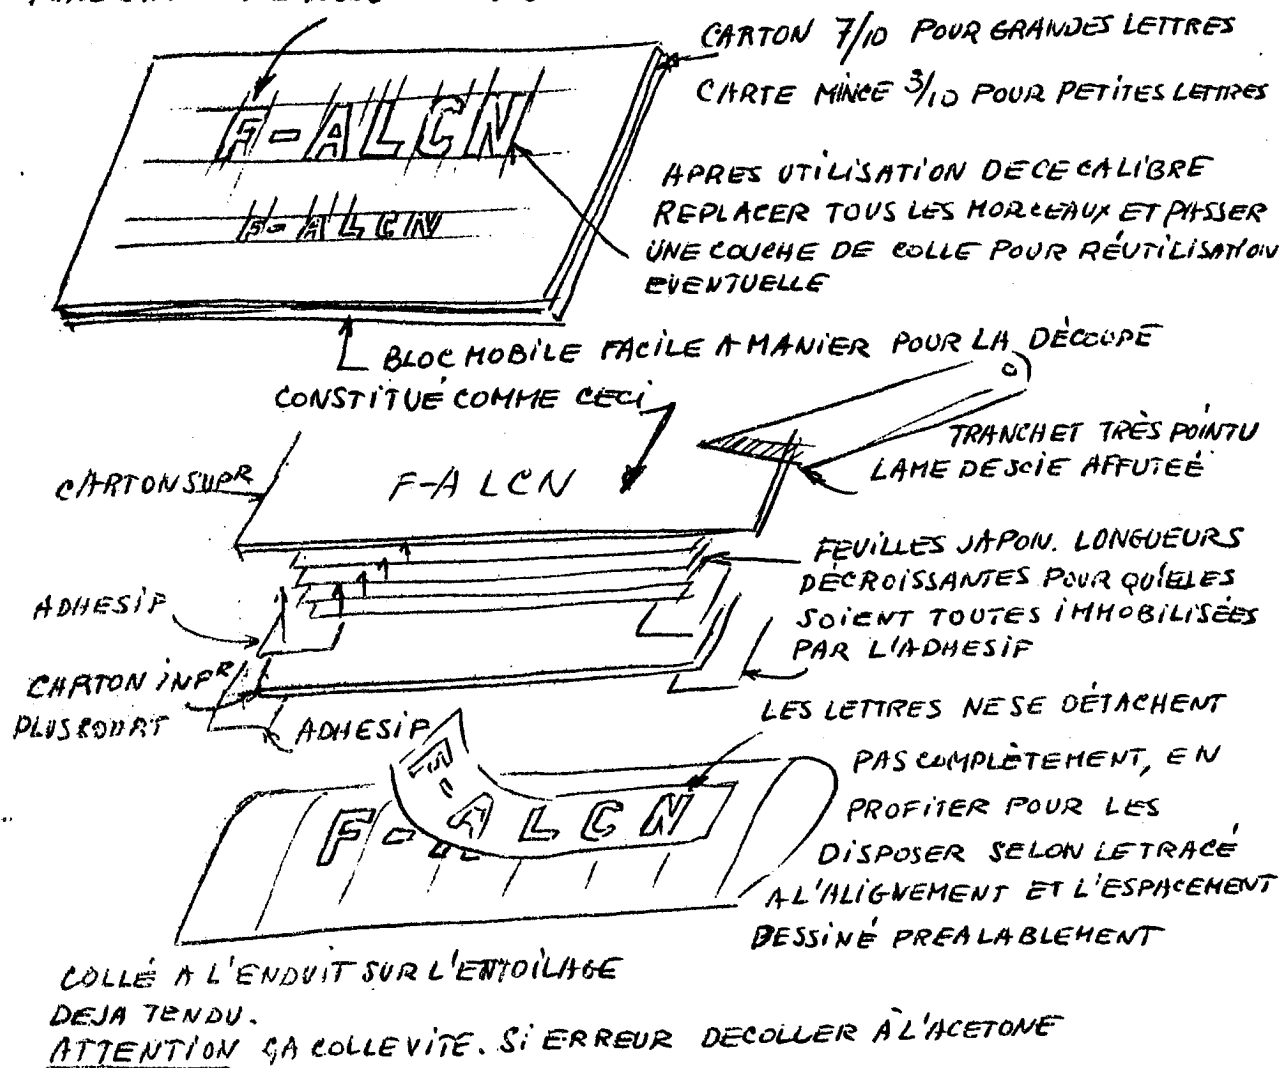 CARTON 7/10 POUR GRANDES LETTRES
CARTE MINCE 3/10 POUR PETITES LETTRES
F-ALCN
F-ALCN
APRES UTILISATION DE CE CALIBRE
REPLACER TOUS LES MORCEAUX ET PASSER
UNE COUCHE DE COLLE POUR RÉUTILISATION
EVENTUELLE
BLOC MOBILE FACILE A MANIER POUR LA DÉCOUPE
CONSTITUÉ COMME CECI
TRANCHET TRÈS POINTU
LAME DE SCIE AFFUTEÉ
CARTON SUPR
F-ALCN
FEUILLES JAPON. LONGUEURS
DÉCROISSANTES POUR QU'IELES
SOIENT TOUTES IMMOBILISÉES
PAR L'ADHESIF
ADHESIF
CARTON INFR
PLUS COURT
ADHESIF
LES LETTRES NE SE DÉTACHENT
PAS COMPLÈTEMENT, EN
PROFITER POUR LES
DISPOSER SELON LE TRACÉ
A L'ALIGNEMENT ET L'ESPACEMENT
DESSINÉ PREALABLEMENT
F-A
F-ALCN
COLLÉ A L'ENDUIT SUR L'ENTOILAGE
DEJA TENDU.
ATTENTION ÇA COLLE VITE. SI ERREUR DECOLLER À L'ACETONE